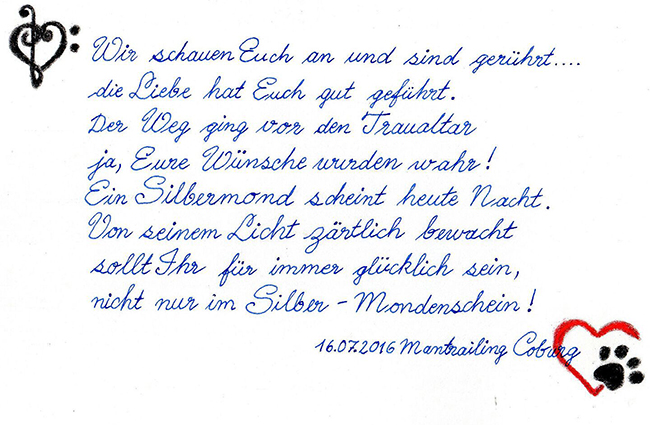 Wir schauen Euch an und sind gerührt....
die Liebe hat Euch gut geführt.
Der Weg ging vor den Traualtar
ja, Eure Wünsche wurden wahr!
Ein Silbermond scheint heute Nacht.
Von seinem Licht zärtlich bewacht
sollt Ihr für immer glücklich sein,
nicht nur im Silber - Mondenschein!
16.07.2016 Mantrailing Coburg